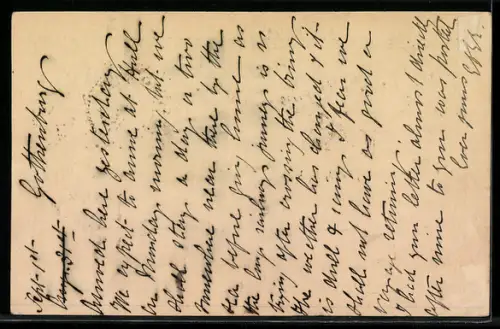 Sept. 1st-
August 31st- Gothenburg
Arrived here yesterday
We expect to arrive at Hull
on Sunday morning, but we
shall stay a day or two
somewhere near there by the
Sea before going home as
the long railway journey is so
trying after crossing the briny
The weather has changed & it
is dull & rainy & I fear we
shall not have as good a
voyage returning
I had your letter almost directly
after mine to you was posted
Ever yours